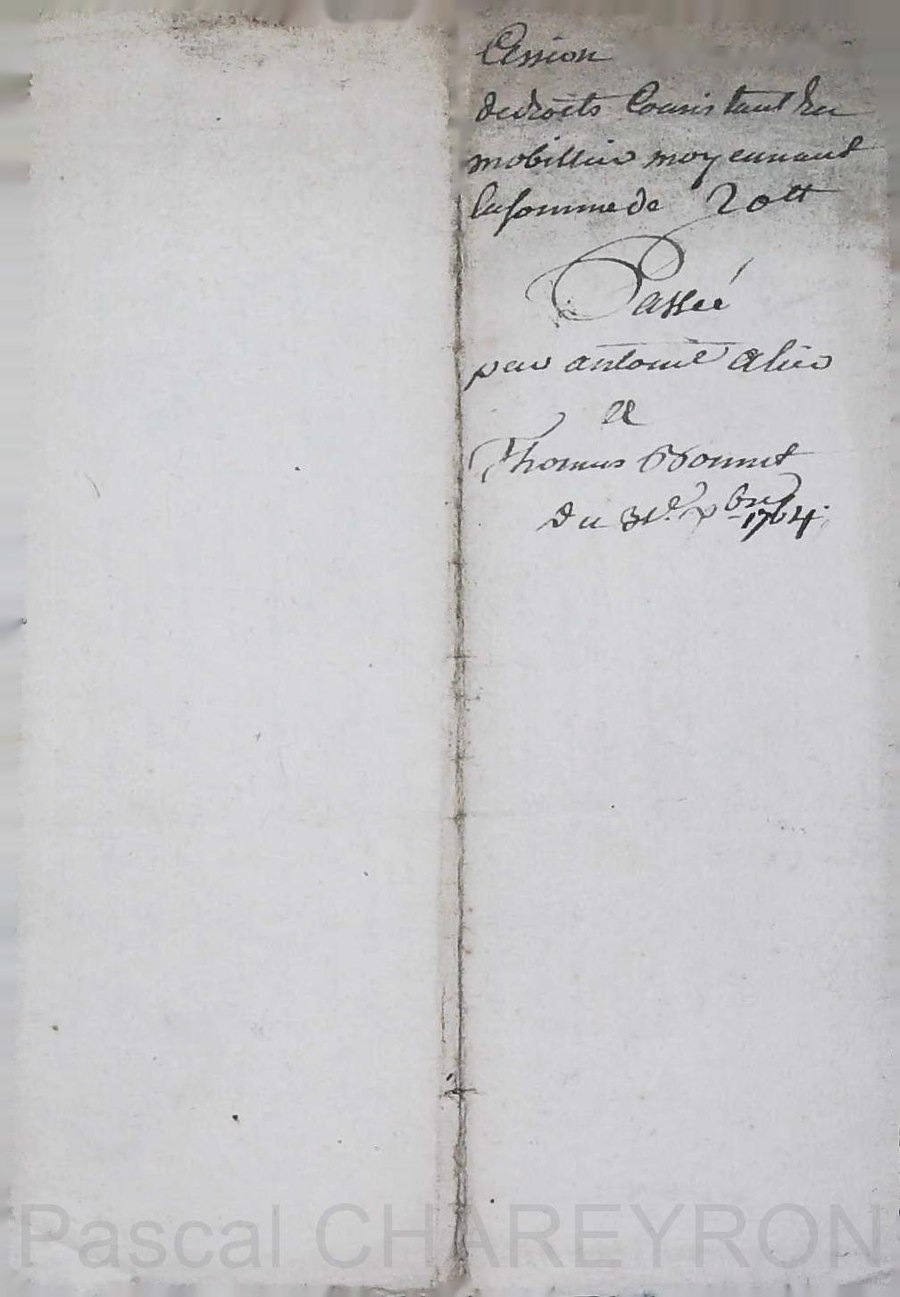 Cession
de droits Consistant En
mobillier moyennant
la somme de 20 tt
Passée
par antoine alier
a
Thomas Bonnet
du 31e. xbre 1764.
Pascal CHAREYRON